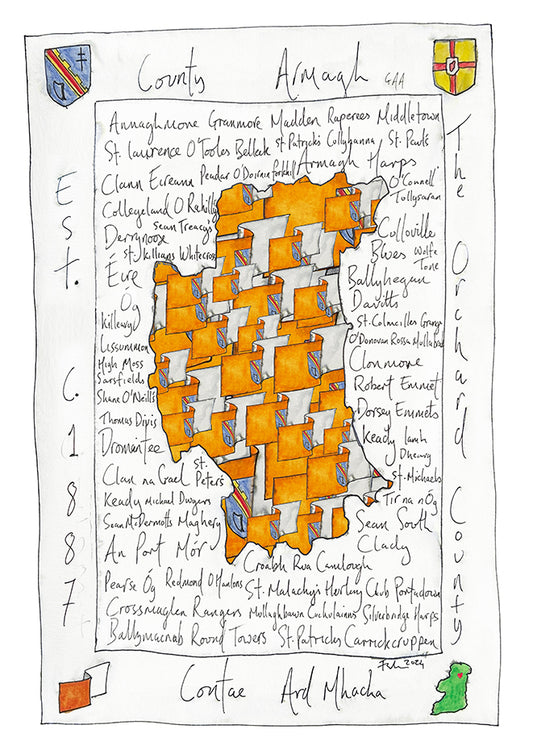 County Armagh GAA
Annaghmore Granmore Madden Raparees Middletown
St. Laurence O'Tooles Belleek St Patrick's Cullyhanna St. Pauls
Clann Eireann Peadar O'Doirnin Forkhill Armagh Harps
Collegeland O Rahilly
O'Connell Tullysaran
Derrynoose
Sean Treacy's
St. Killians Whitecross
Éire
Óg
Killeavy
Lissummon
High Moss
Sarsfields
Shane O'Neill's
Thomas
Dromintee
Clan na Gael St. Peters
Keady Michael Dwyers
Sean McDermotts Maghery
An Port Mór
Colloville
Blues Wolfe Tone
Ballyhegan
Davitts
St. Colmcilles Grange
O'Donovan Rossa Mullabrack
Clonmore
Robert Emmet
Dorsey Emmets
Keady Lamh
Dhearg
St. Michaels
Tir na nÓg
Sean South
Clady
Craobh Rua Camlough
Pearse Óg Redmond O'Hanlons St. Malachy's Hurling Club Portadown
Crossmaglen Rangers Mullaghbawn Cuchulainns Silverbridge Harps
Ballymacnab Round Towers St. Patricks Carrickcruppen
Est. C. 1887
The Orchard County
Contae Ard Mhacha
2024